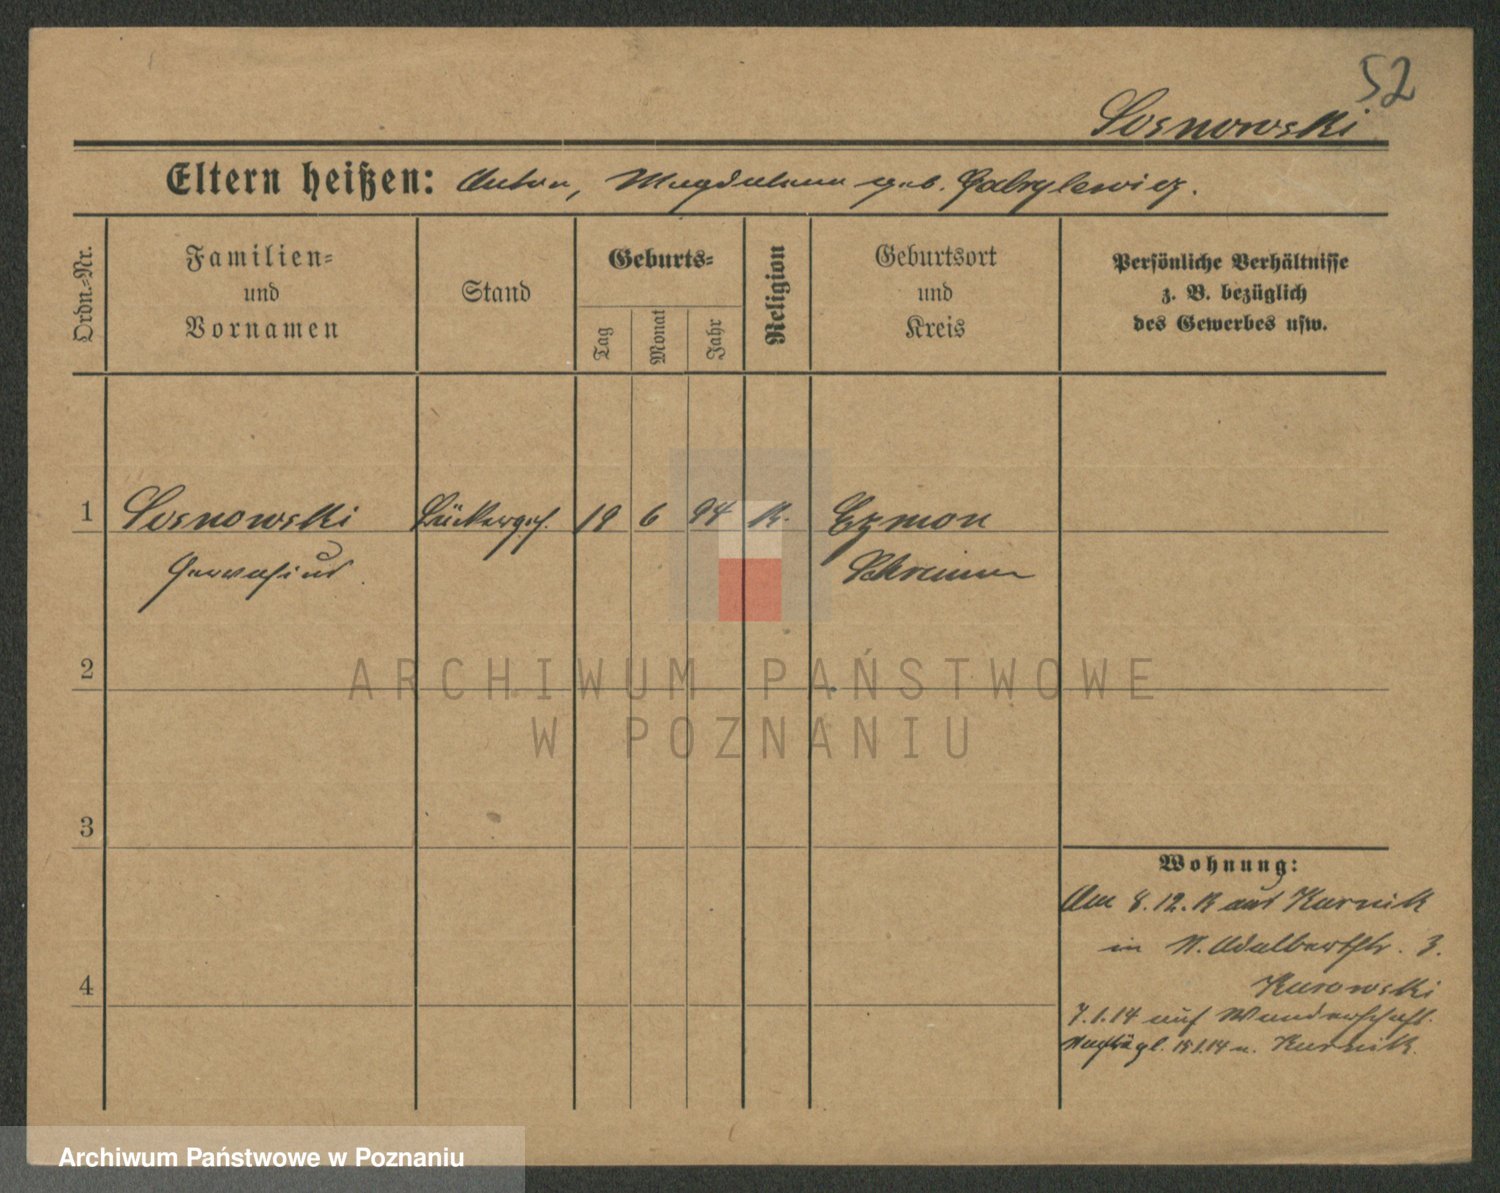 52
Sosnowski
Eltern heißen: Anton, Magdalena geb. Gabrylewicz.
Ordn.-Nr.
Familien-
und
Vornamen
Stand
Geburts-
Tag
Monat
Jahr
Religion
Geburtsort
und
Kreis
Persönliche Verhältnisse
z. B. bezüglich
des Gewerbes usw.
1 Sosnowski Bäckerges. 19 6 94 K. Czmon
Gervasius Schrimm
2
ARCHIWUM PAŃSTWOWE
W POZNANIU
3
Wohnung:
Am 8.12. aus Kurnik
in St. Adalbertstr. 3.
4
Kurowski
7.1.14 auf Wanderschaft.
Nachträgl. 15.1.14 n. Kurnik.
Archiwum Państwowe w Poznaniu